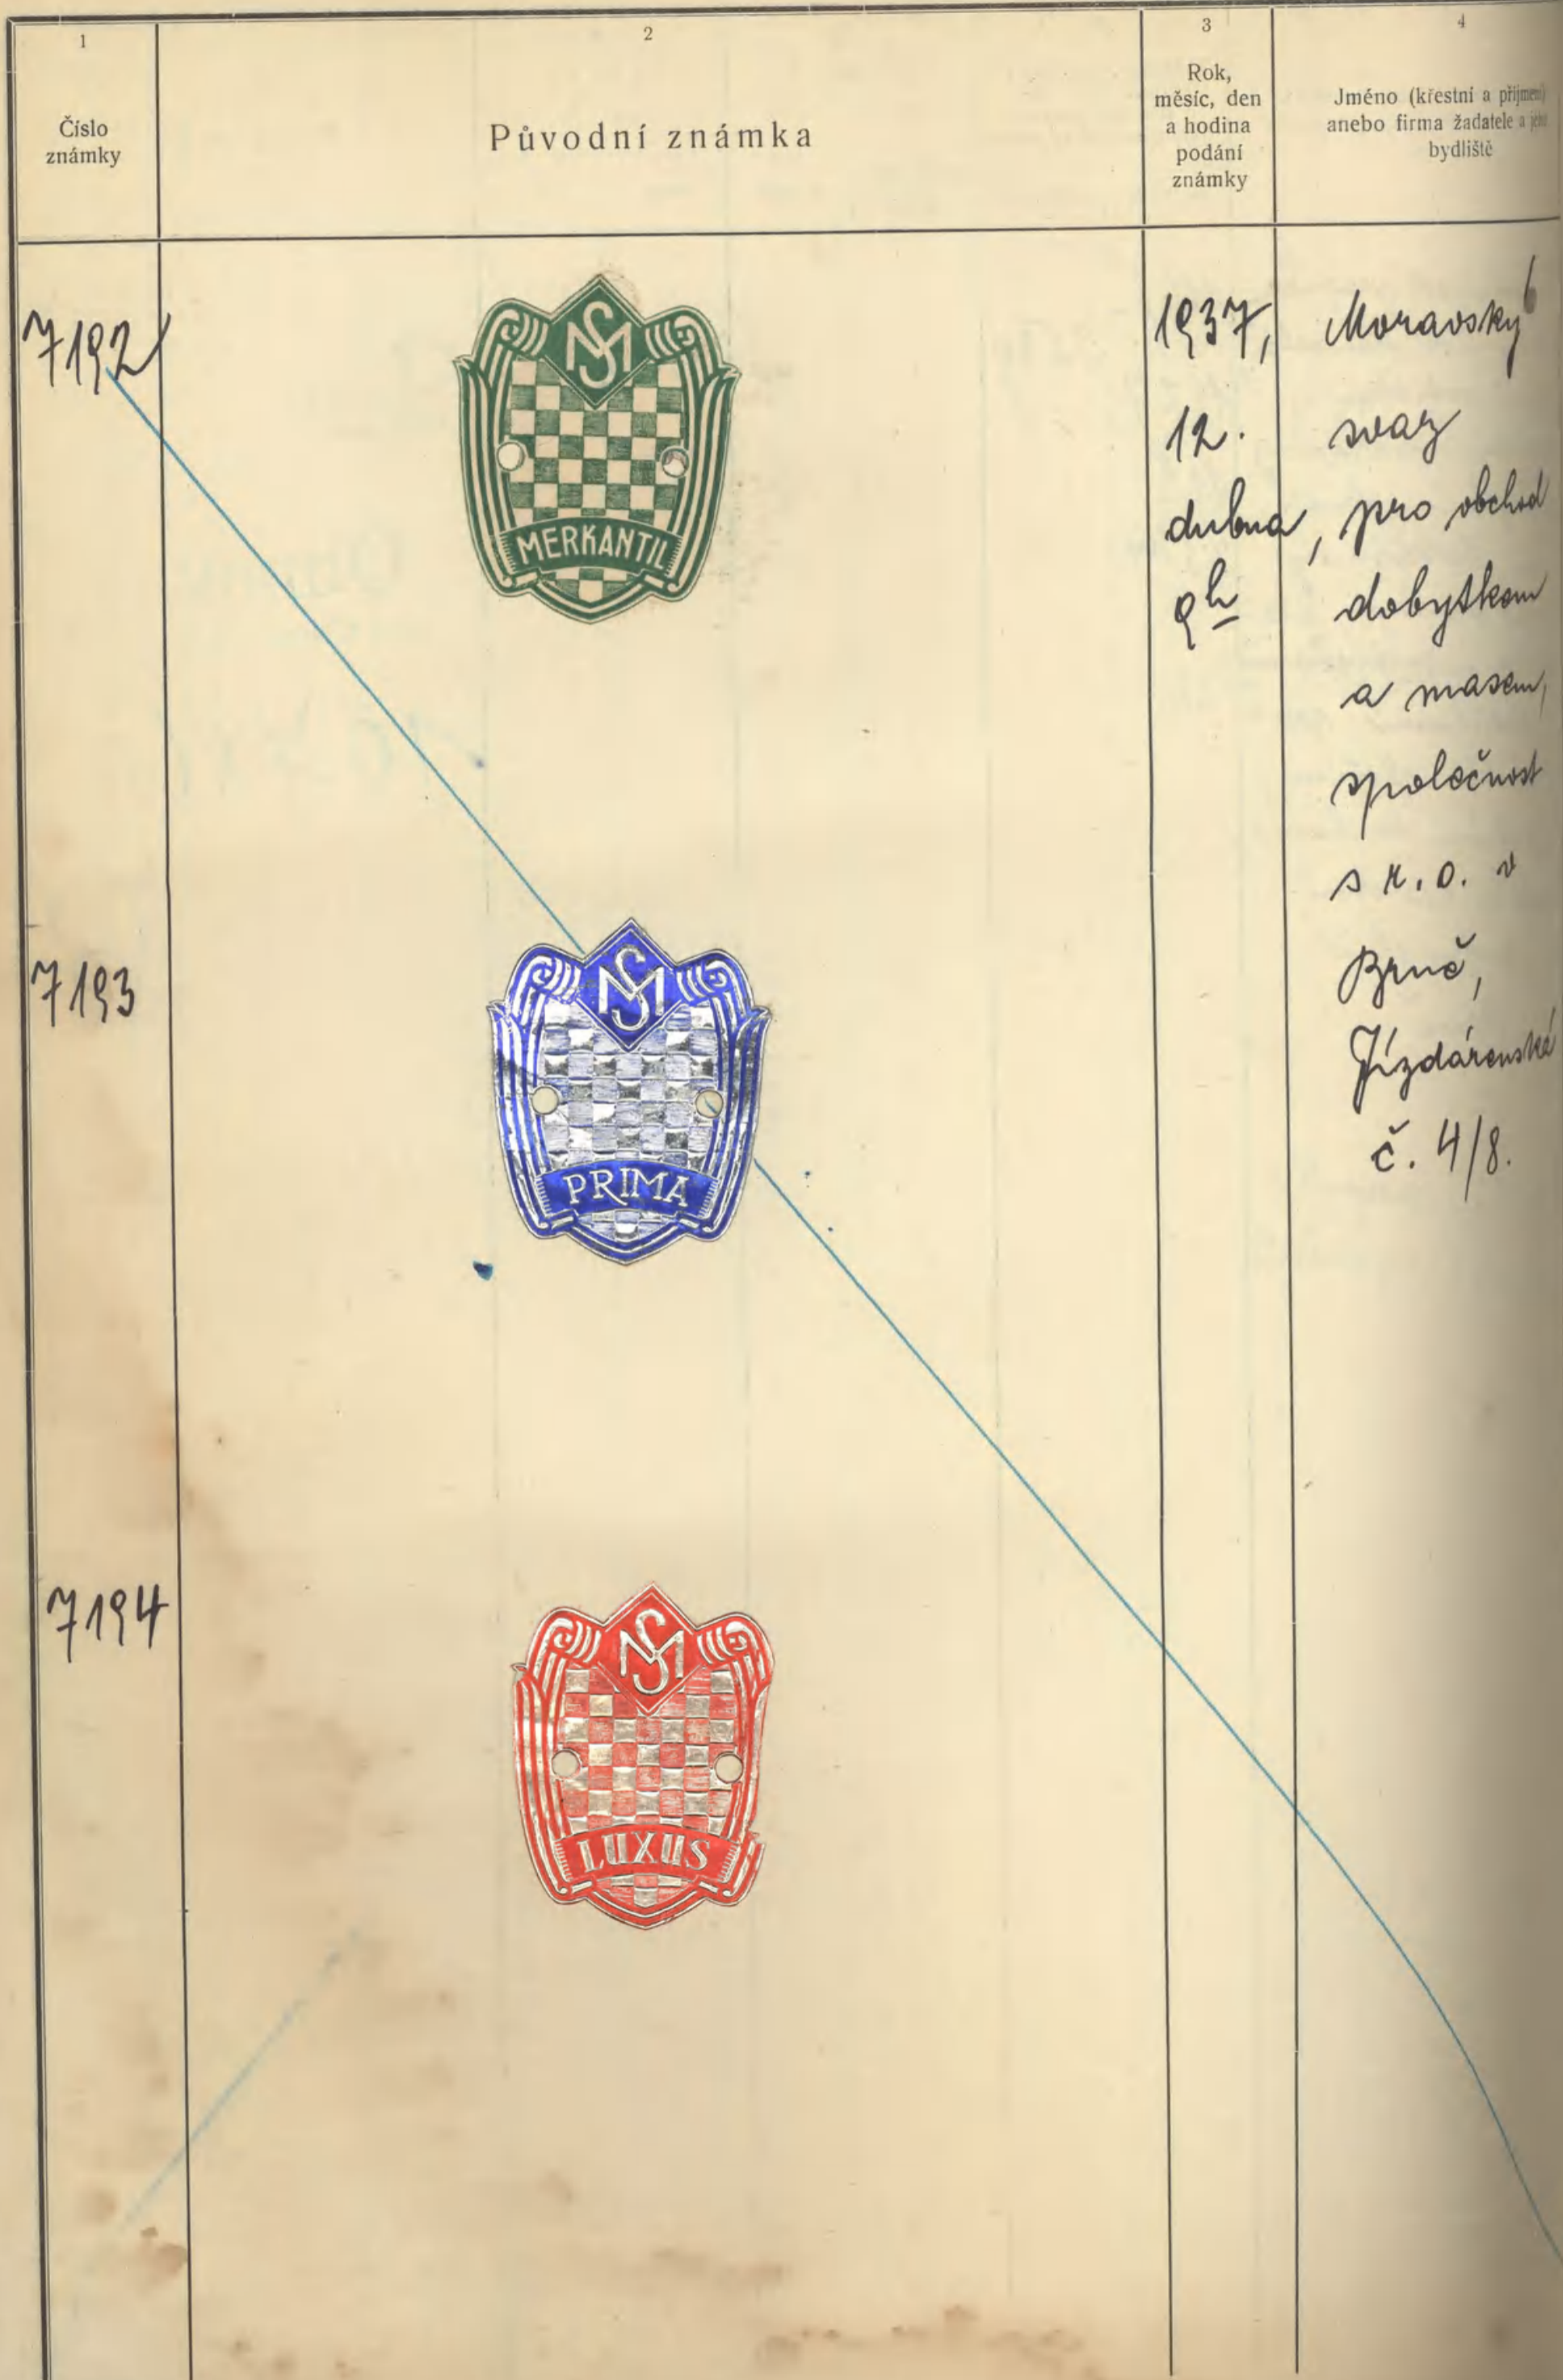 1
Číslo
známky
2
Původní známka
3
Rok,
měsíc, den
a hodina
podání
známky
4
Jméno (křestní a příjmení)
anebo firma žadatele a jeho
bydliště
7192
SM
MERKANTIL
1937,
12.
dubna,
9h
Moravský
svaz
pro obchod
dobytkem
a masem,
společnost
s r. o. v
Brně,
Jízdárenská
č. 4/8.
7193
SM
PRIMA
7194
SM
LUXUS